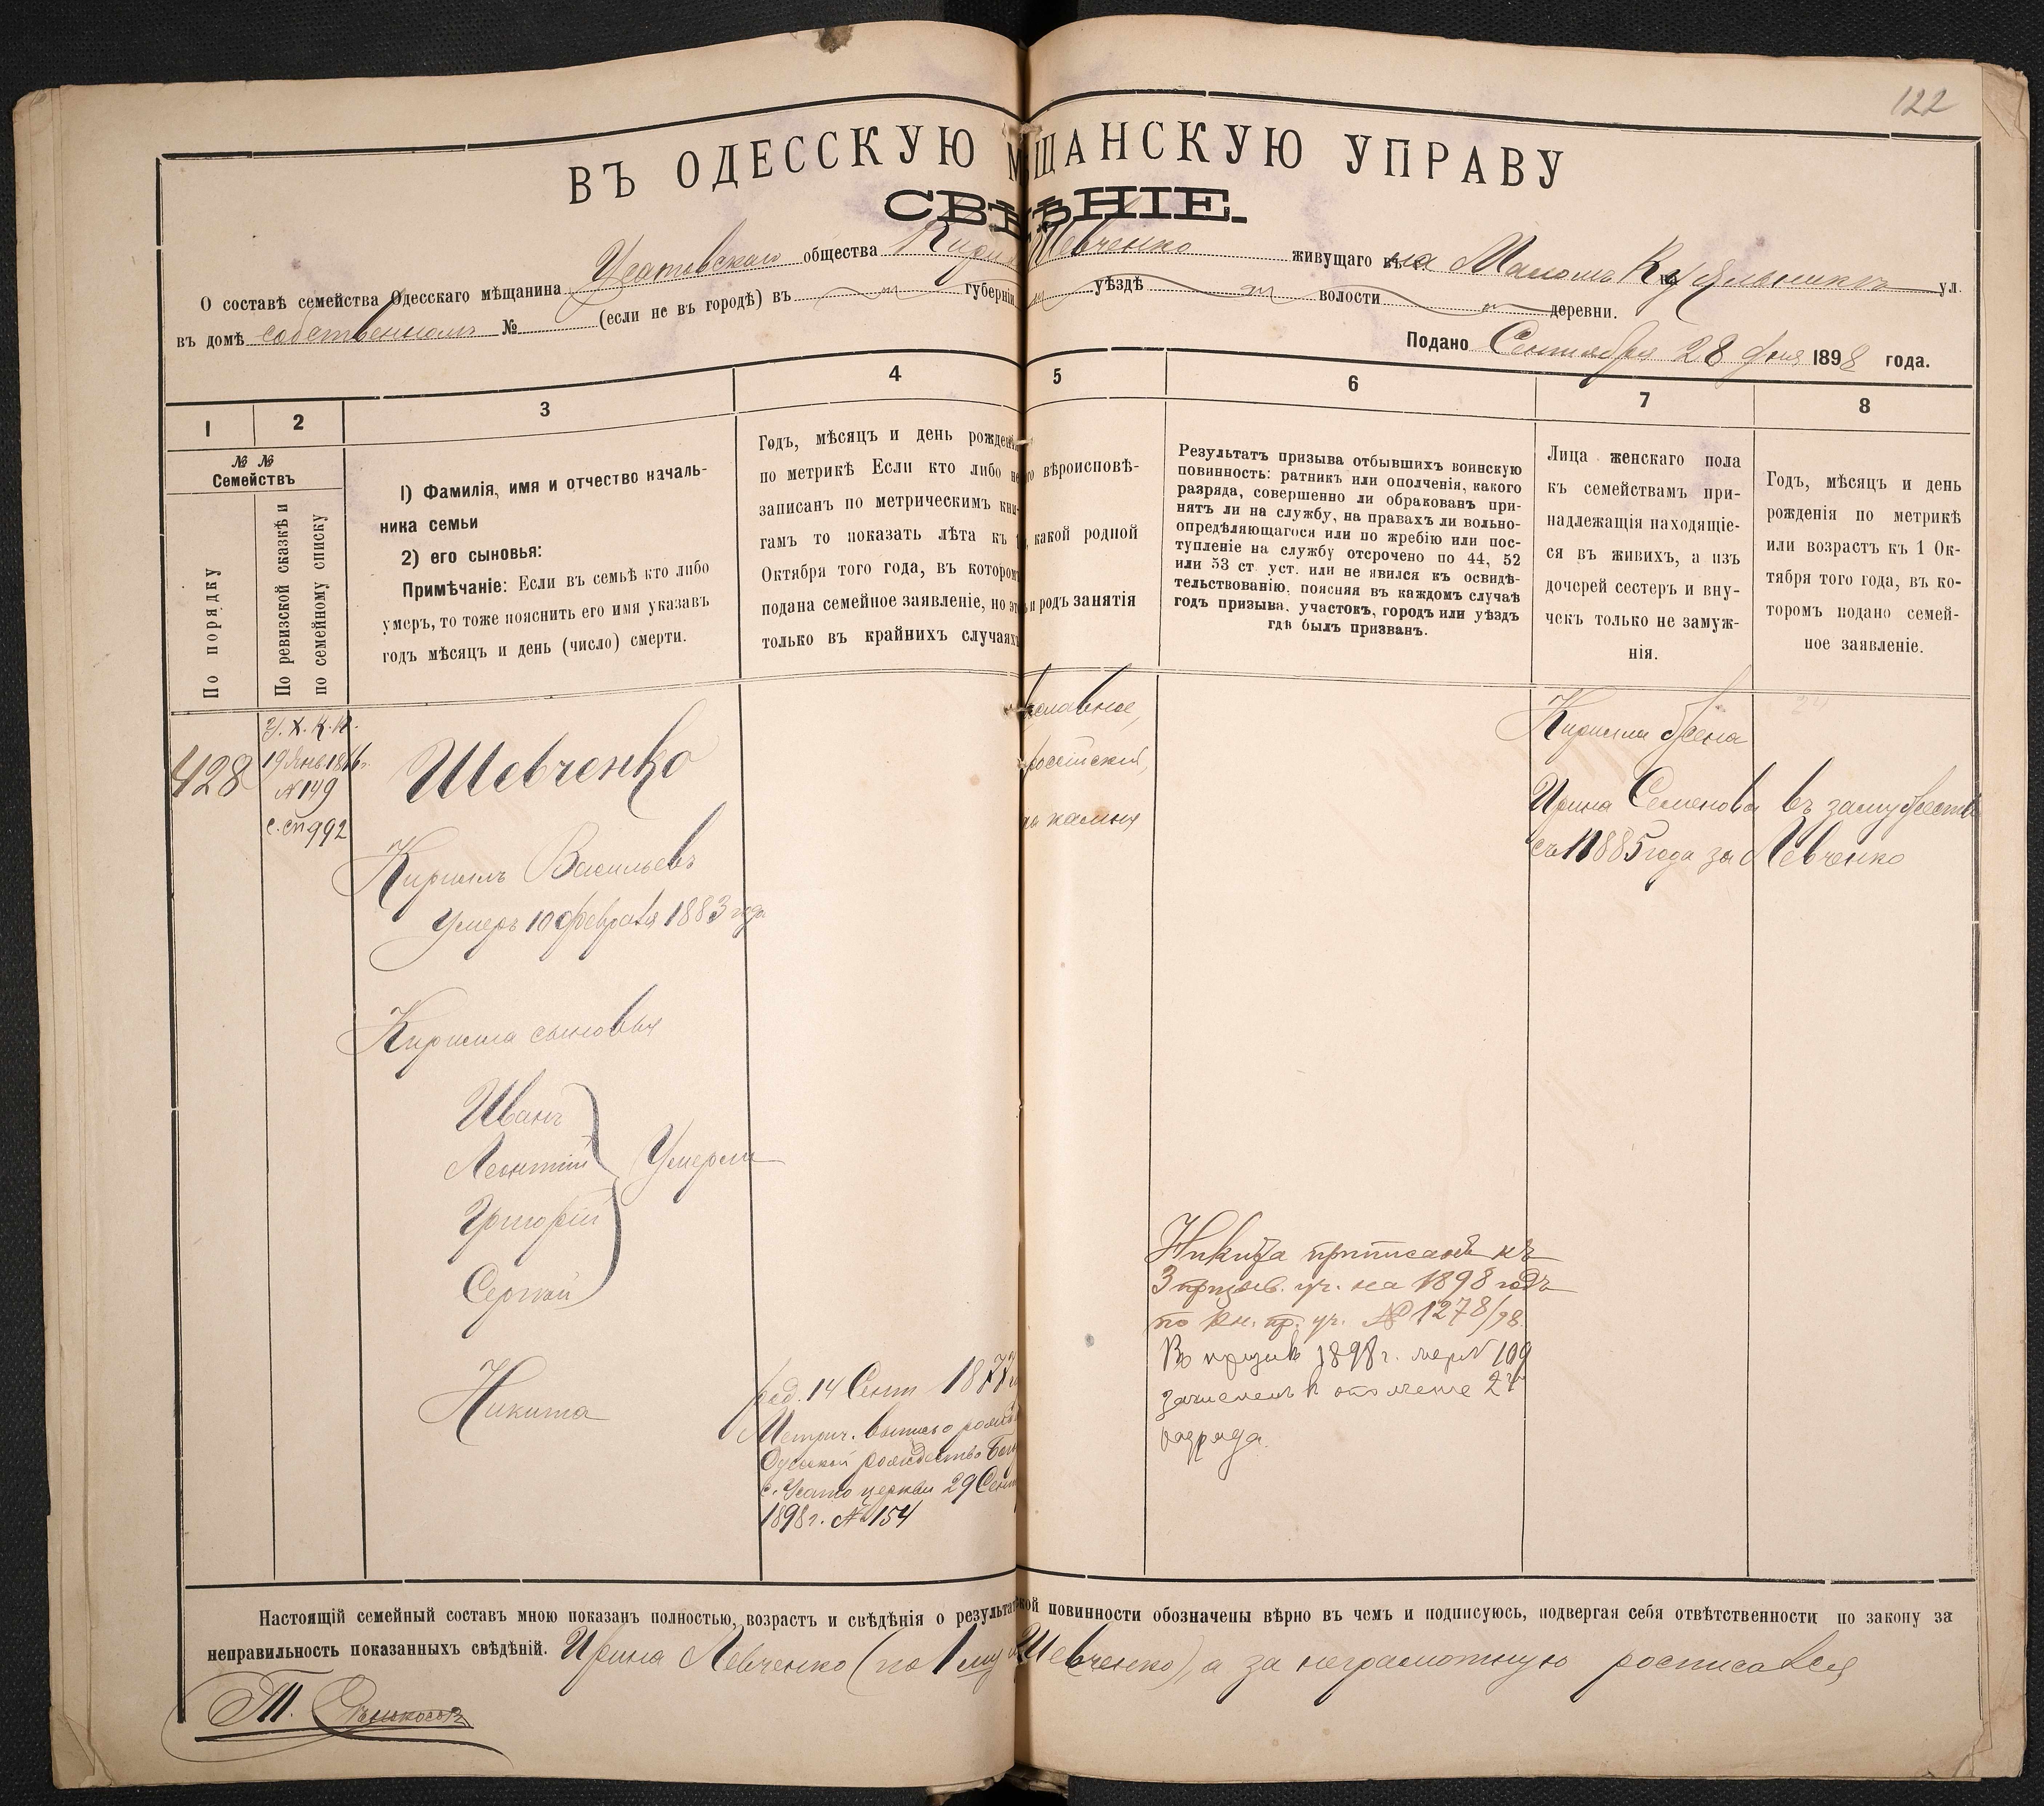 122
ВЪ ОДЕССКУЮ МЩАНСКУЮ УПРАВУ
СВѢНІЕ.
О составѣ семейства Одесскаго мѣщанина Усатовскаго общества Шевченко живущаго въ на Маломъ Куяльникѣ ул.
въ домѣ собственномъ № (если не въ городѣ) въ губерніи уѣздѣ волости деревни.
Подано Сентября 28 дня 1898 года.
1 2 3 4 5 6 7 8
№ №
Семействъ
По порядку
По ревизской сказкѣ и
по семейному списку
1) Фамилія, имя и отчество началь-
ника семьи
2) его сыновья:
Примѣчаніе: Если въ семьѣ кто либо
умеръ, то тоже пояснить его имя указавъ
годъ мѣсяцъ и день (число) смерти.
Годъ, мѣсяцъ и день рожден
по метрикѣ Если кто либо не
записанъ по метрическимъ кни-
гамъ то показать лѣта къ 1
Октября того года, въ котором
подана семейное заявленіе, но эт
только въ крайнихъ случаяхъ
го вѣроисповѣ-
какой родной
и родъ занятія
Результатъ призыва отбывшихъ воинскую
повинность: ратникъ или ополченія, какого
разряда, совершенно ли обракованъ при-
нятъ ли на службу, на правахъ ли вольно-
опредѣляющагося или по жребію или пос-
тупленіе на службу отсрочено по 44, 52
или 53 ст. уст. или не явился къ освидѣ-
тельствованію, поясняя въ каждомъ случаѣ
годъ призыва, участокъ, городъ или уѣздъ
гдѣ былъ призванъ.
Лица женскаго пола
къ семействамъ при-
надлежащія находящіе-
ся въ живихъ, а изъ
дочерей сестеръ и вну-
чекъ только не замуж-
нія.
Годъ, мѣсяцъ и день
рожденія по метрикѣ
или возрастъ къ 1 Ок-
тября того года, въ ко-
торомъ подано семей-
ное заявленіе.
428
У. Х. К. П.
19 Янв. 1866 г.
№ 149
с. сп 992
Шевченко
Кириллъ Васильевъ
Умеръ 10 февраля 1883 года
Кирилла сыновья
Иванъ
Леонтій
Умерли
Григорій
Сергѣй
Никита
род. 14 Сент 1877
Метрич. выпись о рожд
Одесской рождество Бог
с. Усато церкви 29 Сент
1898 г. № 154
вославное,
россійскій,
камня
Никита приписанъ къ
3 призыв. уч. на 1898 годъ
по кн. пр. уч. № 1278/98
Въ призывъ 1898 г. жер № 109
зачисленъ в ополченіе 2го
разряда.
Кирилла жена
Ирина Семенова въ замужестве
съ 1885 года за Левченко
Настоящій семейный составъ мною показанъ полностью, возрастъ и свѣдѣнія о результат кой повинности обозначены вѣрно въ чемъ и подписуюсь, подвергая себя отвѣтственности по закону за
неправильность показанныхъ свѣдѣній. Ирина Левченко (по 1 муж Шевченко), а за неграмотную росписался
Т.